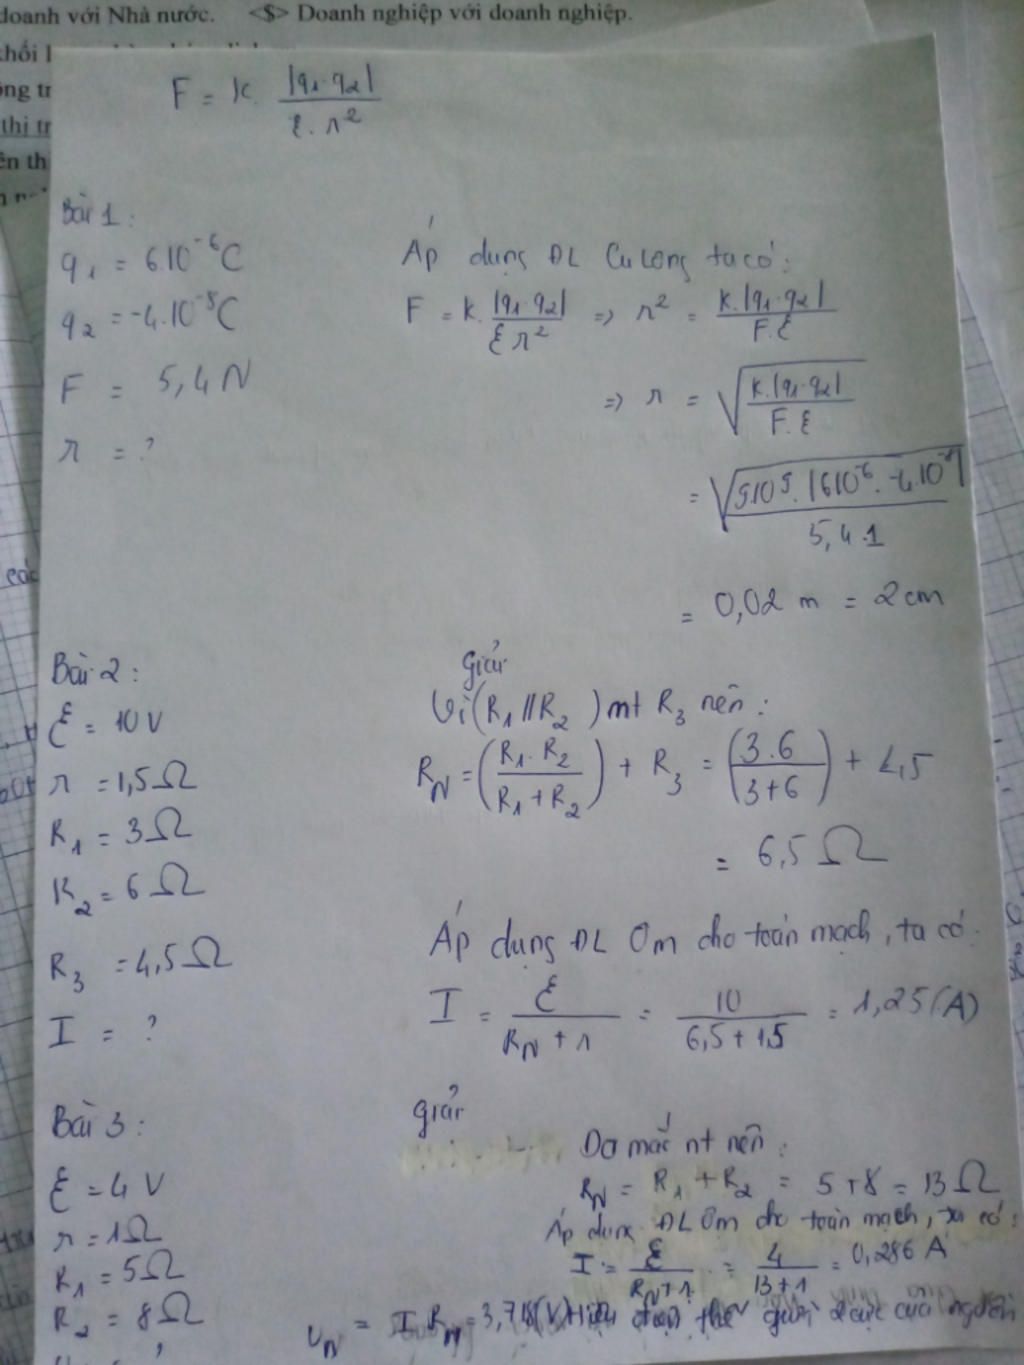 doanh với Nhà nước. <$> Doanh nghiệp với doanh nghiệp.
F = k. |q1.q2| / ε.r²
Bài 1:
q1 = 6.10⁻⁶C
q2 = -4.10⁻⁸C
F = 5,4 N
r = ?
Áp dụng ĐL Culong ta có:
F = k. |q1.q2| / εr² => r² = k.|q1.q2| / F.ε
=> r = √(k.|q1.q2| / F.ε)
= √(9.10⁹.|6.10⁻⁶.-4.10⁻⁸| / 5,4.1)
= 0,02 m = 2 cm
Bài 2:
ℰ = 10 V
r = 1,5Ω
R1 = 3Ω
R2 = 6Ω
R3 = 4,5Ω
I = ?
Giải
Vì (R1 // R2) mt R3 nên:
RN = (R1.R2 / R1 + R2) + R3 = (3.6 / 3+6) + 4,5
= 6,5 Ω
Áp dụng ĐL Ôm cho toàn mạch, ta có
I = ℰ / RN + r = 10 / 6,5 + 1,5 = 1,25 (A)
Bài 3:
ℰ = 4 V
r = 1Ω
R1 = 5Ω
R2 = 8Ω
giải
Do mắc nt nên:
RN = R1 + R2 = 5 + 8 = 13 Ω
Áp dụng ĐL Ôm cho toàn mạch, ta có:
I = ℰ / RN + r = 4 / 13 + 1 = 0,286 A
UN = I.RN = 3,718(V) Hiệu điện thế giữa 2 cực của nguồn